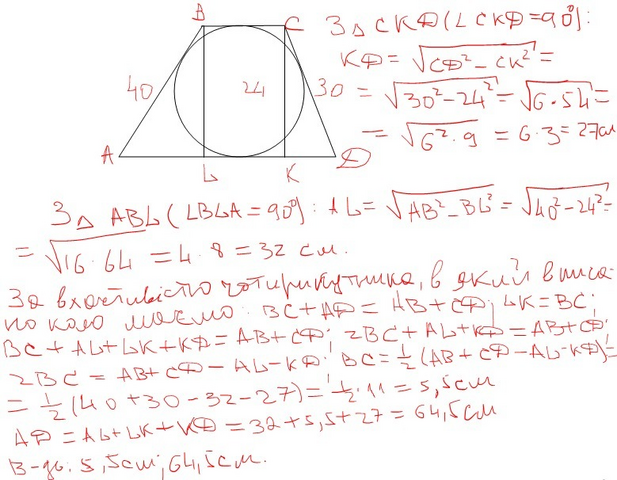 B C
40 24 30
A L K D
З Δ CKD (∠CKD = 90°):
KD = √(CD² − CK²) =
= √(30² − 24²) = √(6·54) =
= √(6²·9) = 6·3 = 27см
З Δ ABL (∠BLA = 90°): AL = √(AB² − BL²) = √(40² − 24²) =
= √(16·64) = 4·8 = 32 см.
За властивістю чотирикутника, в який вписа-
но коло маємо: BC + AD = AB + CD; LK = BC;
BC + AL + LK + KD = AB + CD; 2BC + AL + KD = AB + CD;
2BC = AB + CD − AL − KD; BC = ½ (AB + CD − AL − KD) =
= ½ (40 + 30 − 32 − 27) = ½ · 11 = 5,5см
AD = AL + LK + KD = 32 + 5,5 + 27 = 64,5см
В-дь: 5,5см; 64,5см.